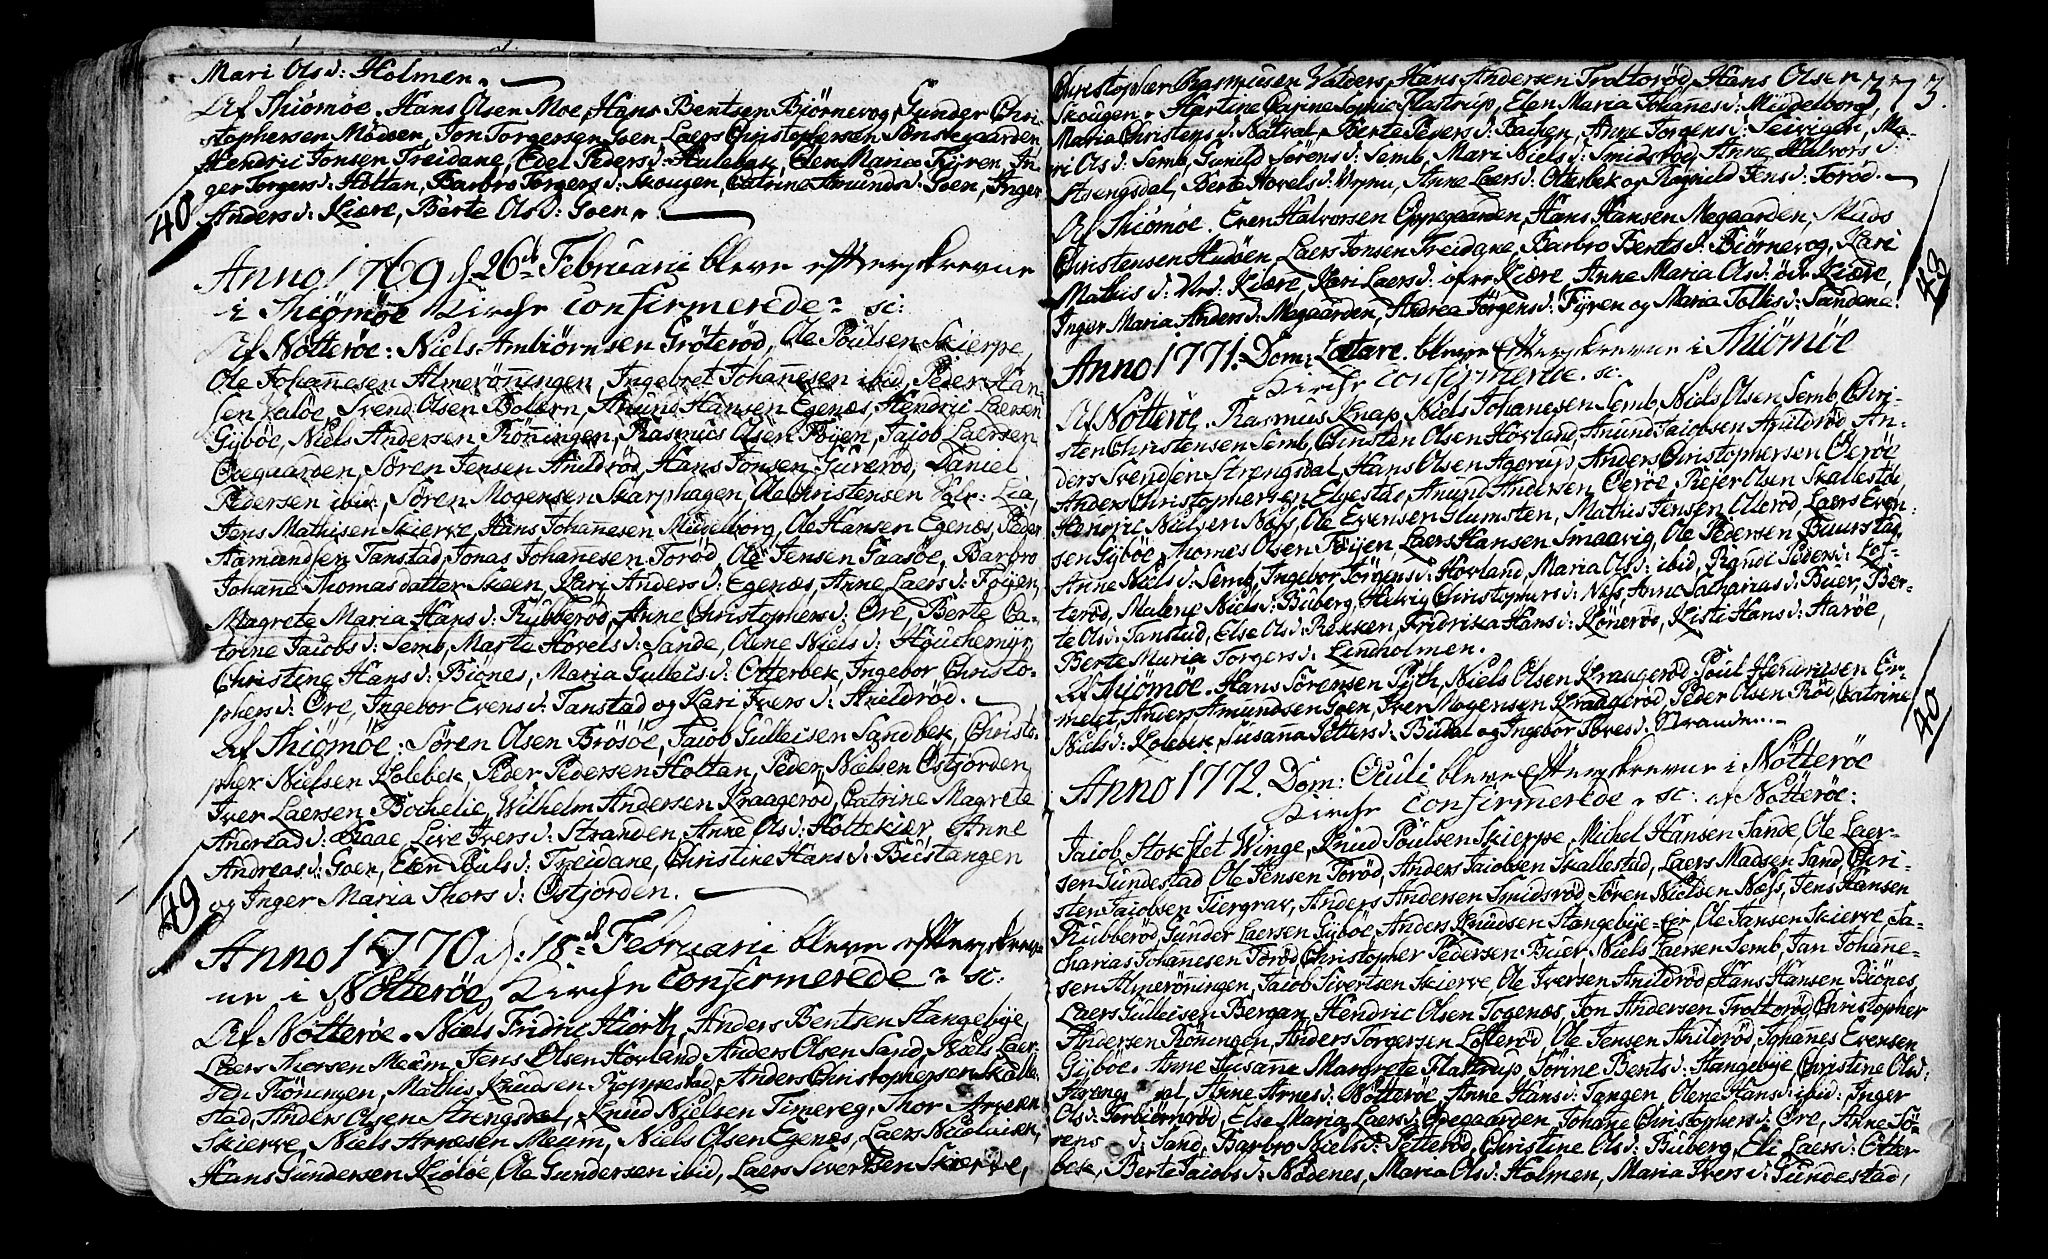 Mari Olsd: Holmen.
Af Thiömöe, Hans Olsen Moe, Hans Bentsen Biörnevog, Gunder Chri-
stophersen Mødsen, Jon Torgersen Goen, Laers Christophersen
Hendric Jonsen Treidane, Edel Peders d: Hulebak, Elen Maria Fÿren, In-
ger Torgers d: Holtan, Barbro Torgers d: Skougen, Catrina Amunds d: Goen, Inger
40 Anders d: Kiære, Berte Ols d: Goen.
Anno 1769 d. 26de Februarii bleve efterskrevne
i Thiömöe Kirche confirmerede. sc:
Af Nötteröe: Niels Ambiörnsen Gröteröd, Ole Poulsen Skierpe,
Ole Johannesen Almeröningen, Ingebret Johannesen ibid, Peder Han-
sen Kalöe, Svend Olsen Bolærn, Amund Hansen Egenæs, Hendric Laersen
Gÿböe, Niels Andersen Röningen, Rasmus Olsen Föÿen, Jacob Laersen
Oregaarden, Sören Jensen Anildröd, Hans Jonsen Sureröd, Daniel
Pedersen ibid, Sören Mogensen Skarphagen, Ole Christensen Lia,
Jens Mathisen Skierve, Hans Johannesen Meidelborg, Ole Hansen Egenæs, Peder
Aamundsen Tanstad, Jonas Johanesen Toröd, Ole Jensen Gaasöe, Barbro
Johanne Thomasdatter Skeen, Kari Anders d: Egenæs, Anne Laers d: Foÿen,
Magrete Maria Hans d: Rubberöd, Anne Christophers d: Ore, Berte Ca-
trine Jacobs d: Semb, Marta Hovels d: Sande, Olene Niels d:
Christine Hans d: Biönes, Maria Gulleis d: Otterbek, Ingebor Christo-
phers d: Ore, Ingebor Evens d: Tanstad og Kari Ivers d: Anildröd.
Af Thiömöe: Sören Olsen Brösöe, Jacob Gulleisen Sandbek, Christo-
pher Nielsen Holebek, Peder Pedersen Holtan, Peder Nielsen Østjorden,
Iver Laersen Bochelie, Wilhelm Andersen Kraageröd, Catrine Magrete
Andread d: Haae, Live Ivers d: Stranden, Anne Ols d: Holtekiær, Anne
Andreas d: Goen, Elen Pouls d: Treidane, Christine Hans d: Bustangen
49 og Inger Maria Thors d: Østjorden.
Anno 1770 d: 18de Februarii bleve efterskrev-
ne i Nötteröe Kirche confirmerede. sc:
Af Nötteröe. Niels Fridric Hiorth, Anders Bentsen Stangebÿe,
Laers Iversen Meum, Jens Olsen Hovland, Anders Olsen Sand, Niels Laer-
sen Röningen, Mathis Knudsen Roppestad, Anders Christophersen Skalle-
stad, Anders Olsen Strengsdal, Knud Nielsen Timereg, Thor Arvesen
Skierve, Niels Arnesen Meum, Niels Olsen Egenæs, Laers Nicolaisen,
Hans Gundersen Kiölöe, Ole Gundersen ibid, Laers Sivertsen Skierve,
373.
Christopher Rasmusen Valders, Hans Andersen Troltröd, Hans Olsen
Skougen. Hartine Carine Sophia Flastrup, Elen Maria Johanes d: Meidelborg,
Maria Christens d: Natval, Berte Peders d: Bachen, Anne Torgens d:
ri Ols d: Semb, Gunild Sörens d: Semb, Mari Niels d: Smidsröd, Anne Halvors d:
Strengsdal, Berte Hovels d: Anne Laers d: Otterbek og Ragnild Jens d: Toröd.
Af Thiömöe. Even Halvorsen Oppegaarden, Hans Hansen Megaarden, Mads
Christensen Hudöen, Laers Jonsen Treidane, Barbro Bents d: Biörnevog, Kari
43 Mathis d: Kiære, Kari Laers d: øfre Kiære, Anne Maria Ols d: Kiære,
Inger Maria Anders d: Megaarden, Andrea Jörgens d: Fÿren og Maria Tollis d: Sundene.
Anno 1771. Dom: Lætare. bleve efterskrevne i Thiömöe
Kirche confirmerede. sc:
Af Nötteröe. Rasmus Knap, Niels Johanesen Semb, Niels Olsen Semb, Chri-
sten Christensen Semb, Christen Olsen Hovland, Amund Jacobsen Anildröd, An-
ders Svendsen Strengsdal, Hans Olsen Agerup, Anders Christophersen Oeröe,
Anders Christophersen Elgestad, Amund Andersen Oeröe, Reier Olsen Skallestad,
Hendric Nielsen Næss, Ole Evensen Glumsten, Mathis Jensen Olleröd, Laers Even-
sen Gÿböe, Thomes Olsen Föÿen, Laers Hansen Smaavig, Ole Pedersen Buurstad,
Anne Niels d: Semb, Ingebor Jörgens d: Hovland, Maria Ols d: ibid, Randi Peders d: Lof-
teröd, Malene Niels d: Buberg, Helvig Christophers d: Næss, Anne Sacharias d: Buer, Ber-
te Ols d: Tanstad, Else Ols d: Bekken, Fridrika Hans d: Köneröd, Kisti Hans d: Aaröe,
Berte Maria Torgers d: Lindholmen.
Af Thiömöe. Hans Sörensen Pÿth, Niels Olsen Kraageröd, Poul Hendricsen Gri-
melet, Anders Amundsen Goen, Iver Mogensen Kraageröd, Peder Olsen Röd, Catrine
40 Niels d: Kolebek, Susana Petters d: Budal og Ingebor Tores d: Stranden.
Anno 1772. Dom: Oculi bleve efterskrevne i Nötteröe
Kirche confirmerede. sc: af Nötteröe:
Jacob Stokflet Winge, Knud Poulsen Skierpe, Michel Hansen Sande, Ole Laer-
sen Gundestad, Ole Jensen Toröd, Anders Jacobsen Skallestad, Laers Madsen Sand, Chri-
sten Jacobsen Tiergrav, Anders Andersen Smidsröd, Sören Nielsen Næss, Jens Hansen
Rubberöd, Gunder Laersen Gÿböe, Anders Knudsen Stangebÿe-Eie, Ole Jansen Skierve, Sa-
charias Johanesen Toröd, Christopher Pedersen Buer, Niels Laersen Semb, Jan Johane-
sen Almeröningen, Jacob Sivertsen Skierve, Ole Iversen Anildröd, Hans Hansen Biönes,
Laers Gulleisen Bergan, Hendric Olsen Togenæs, Jon Andersen Troltröd, Christopher
Andersen Röningen, Anders Torgersen Lofteröd, Ole Jensen Anildröd, Johannes Evensen
Gÿböe. Anne Susane Margrete Flastrup, Sörine Bents d: Stangebÿe, Christine Ols d:
Streng dal, Anne Arnes d: Nötteröe, Anne Hans d: Tangen, Olene Hans d: ibid: Inger
Ols d: Torbiörnröd, Else Maria Laers d: Oregaarden, Johane Christophers d: Ore, Anne Sö-
rens d: Sand, Barbro Niels d: Petteröd, Christine Ols d: Buberg, Eli Laers d: Otter-
bek, Berte Jacobs d: Nødenes, Maria Ols d: Holmen, Maria Ivers d: Gundestad,